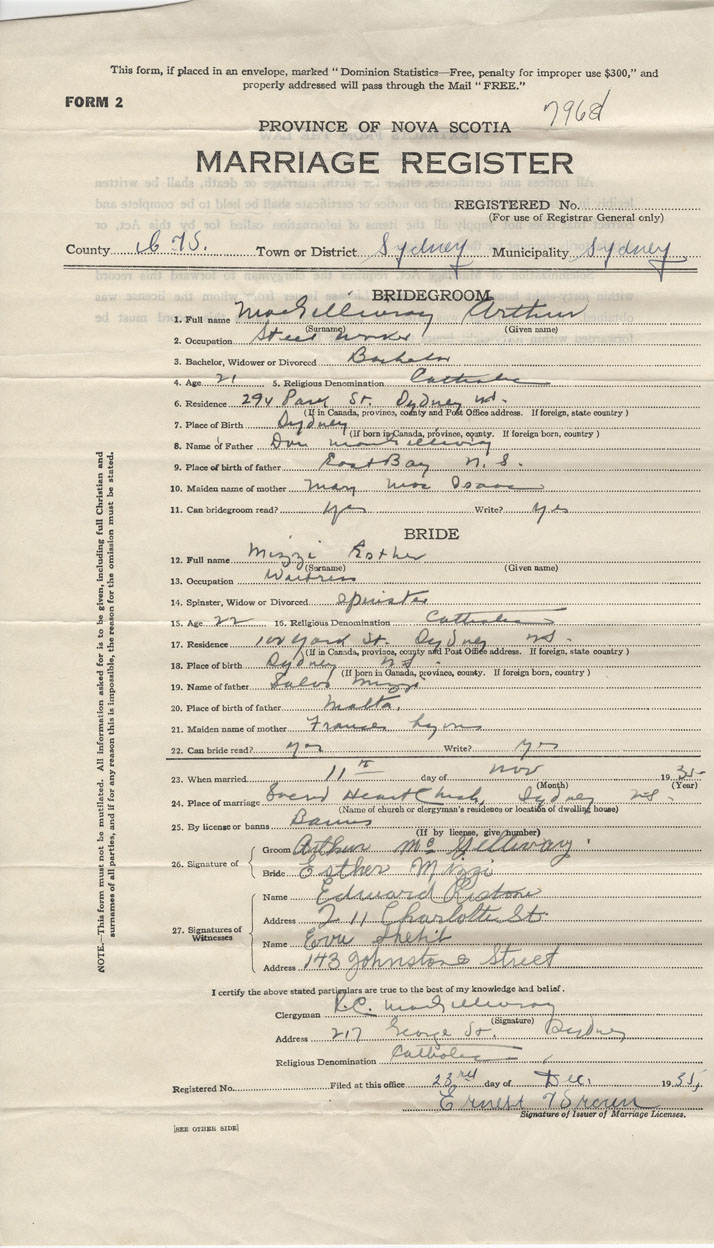 This form, if placed in an envelope, marked "Dominion Statistics—Free, penalty for improper use $300," and
properly addressed will pass through the Mail "FREE."
FORM 2
PROVINCE OF NOVA SCOTIA
MARRIAGE REGISTER
REGISTERED No.
(For use of Registrar General only)
County C B. Town or District Sydney Municipality Sydney
BRIDEGROOM
1. Full name MacGillivray Arthur
(Surname) (Given name)
2. Occupation Steel worker
3. Bachelor, Widower or Divorced Bachelor
4. Age 21 5. Religious Denomination Catholic
6. Residence 294 Park St. Sydney N.S.
(If in Canada, province, county and Post Office address. If foreign, state country)
7. Place of Birth Sydney
(If born in Canada, province, county. If foreign born, country)
8. Name of Father Dan MacGillivray
9. Place of birth of father East Bay N. S.
10. Maiden name of mother Mary Mac Isaac
11. Can bridegroom read? yes Write? yes
BRIDE
12. Full name Mizzi Esther
(Surname) (Given name)
13. Occupation Waitress
14. Spinster, Widow or Divorced Spinster
15. Age 22 16. Religious Denomination Catholic
17. Residence Yard St. Sydney N.S.
(If in Canada, province, county and Post Office address. If foreign, state country)
18. Place of birth Sydney N.S.
(If born in Canada, province, county. If foreign born, country)
19. Name of father Mizzi
20. Place of birth of father Malta.
21. Maiden name of mother Frances Lyons
22. Can bride read? yes Write? yes
23. When married 11th day of Nov 1935
(Month) (Year)
24. Place of marriage Sacred Heart Church, Sydney N.S.
(Name of church or clergyman's residence or location of dwelling house)
25. By license or banns Banns
(If by license, give number)
26. Signature of
Groom Arthur McGillivray
Bride Esther Mizzi
27. Signatures of Witnesses
Name Edward
Address 211 Charlotte St.
Name
Address 143 Johnstone Street
I certify the above stated particulars are true to the best of my knowledge and belief.
Clergyman R.C. MacGillivray
(Signature)
Address 217 George St. Sydney
Religious Denomination Catholic
Registered No. Filed at this office 23rd day of Dec. 1935,
Ernest Brown
Signature of Issuer of Marriage Licenses.
[SEE OTHER SIDE]
NOTE.—This form must not be mutilated. All information asked for is to be given, including full Christian and
surnames of all parties, and if for any reason this is impossible, the reason for the omission must be stated.